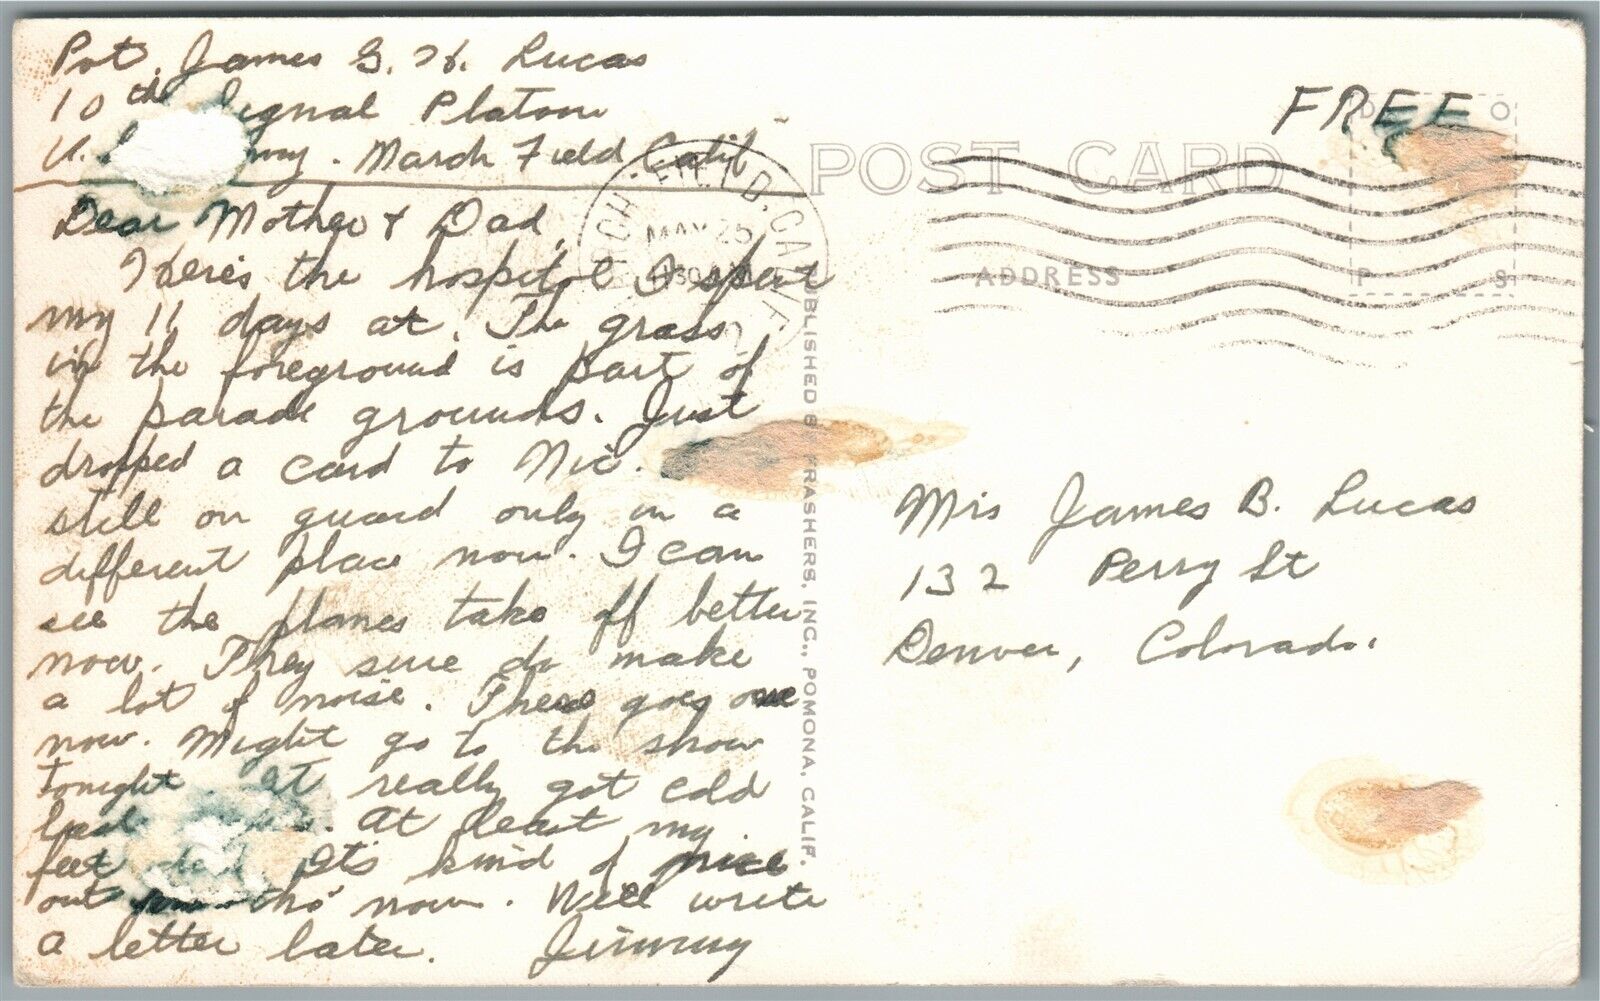 Pvt. James G. H. Lucas
10th Signal Platoon
U. March Field Calif
Dear Mother & Dad,
Here's the hospital I spent
my 11 days at. The grass
in the foreground is part of
the parade grounds. Just
dropped a card to Nic.
still on guard only in a
different place now. I can
see the planes take off better
now. They sure do make
a lot of noise. There goes one
now. Might go to the show
tonight. It really got cold
last. At least my
feet did It's kind of nice
out tho' now. Will write
a letter later. Jimmy
FREE
POST CARD
MARCH FIELD, CALIF.
MAY 25
ADDRESS
PUBLISHED BY FRASHERS, INC., POMONA, CALIF.
Mrs James B. Lucas
132 Perry St
Denver, Colorado.